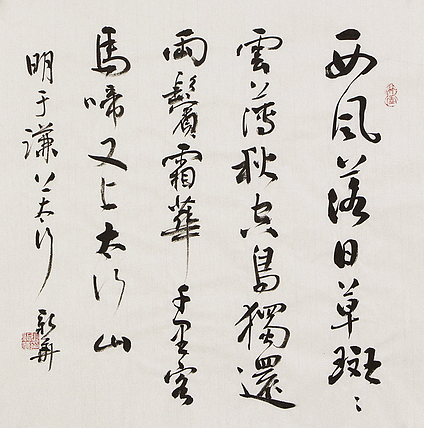 西風落日草斑〻
雲薄秋空鳥獨還
兩鬢霜華千里客
馬啼又上太行山
明于謙上太行